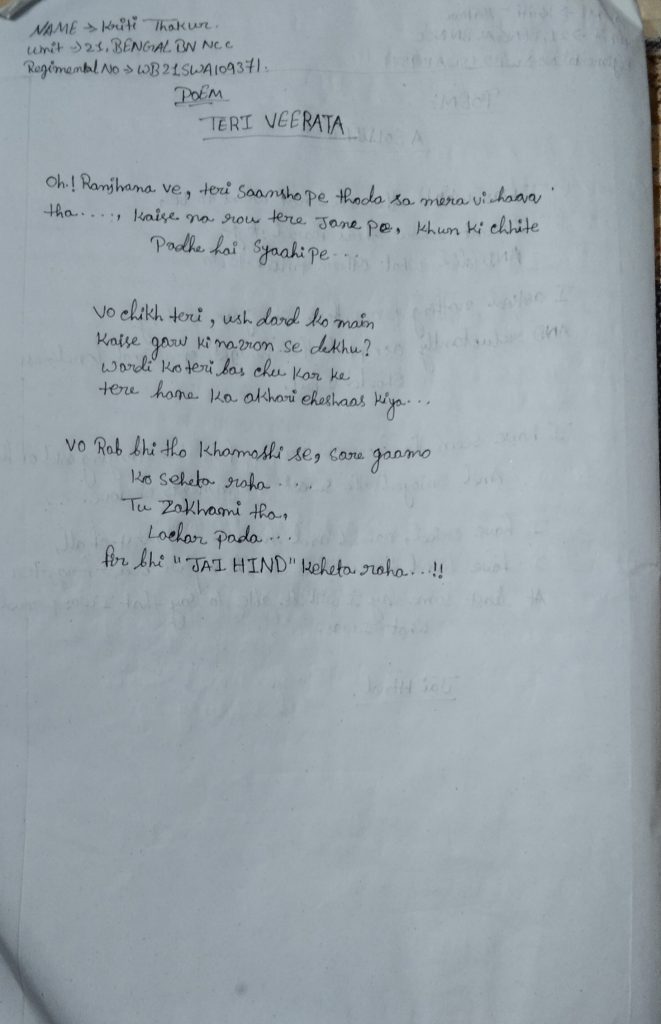 NAME → Kriti Thakur.
Unit → 21, BENGAL BN NCC
Regimental No → WB21SWA109371.
POEM
TERI VEERATA
Oh! Ranjhana ve, teri saansho pe thoda sa mera vi haava
tha...., kaise na rou tere Jane pe, Khun ki chhite
Padhe hai Syaahi pe...
Vo chikh teri, ush dard ko main
Kaise garv ki nazron se dekhu?
Wardi ko teri bas chu kar ke
tere hone ka akhari eheshaas kiya...
VO Rab bhi tho khamoshi se, sare gaamo
Ko seheta raha ....
Tu Zakhami tha,
Lachar pada ...
fir bhi "JAI HIND" keheta raha...!!